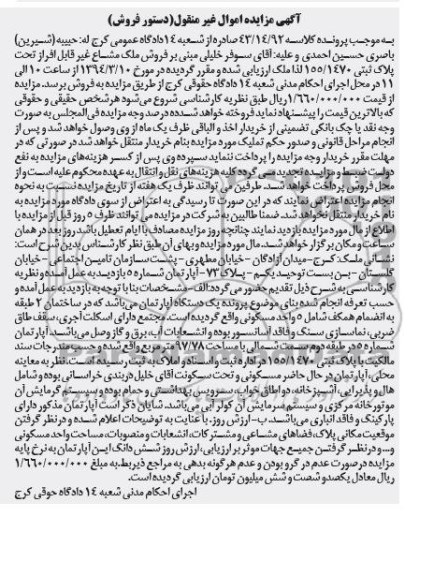 آگهی مزایده اموال غیر منقول(دستور فروش)
به موجب پرونده کلاسه ۴۳/۱۴/۹۲ صادره از شعبه ۱۴ دادگاه عمومی کرج له: حبیبه (شیرین)
یاصری حسین احمدی و علیه: آقای سوفر خلیلی مبنی بر فروش ملک مشاع غیر قابل افراز تحت
پلاک ثبتی ۱۵۵/۱۴۷۰ لذا ملک ارزیابی شده و مقرر گردیده در مورخ ۱۳۹۴/۳/۱۰ از ساعت ۱۰ الی
۱۱ در محل اجرای احکام مدنی شعبه ۱۴ دادگاه حقوقی کرج از طریق مزایده به فروش برسد. مزایده
از قیمت ۱/۶۶۰/۰۰۰/۰۰۰ ریال طبق نظریه کارشناسی شروع می‌شود هر شخص حقیقی و حقوقی
که بالاترین قیمت را پیشنهاد نماید فروخته خواهد شد ده درصد وجه مزایده فی المجلس به صورت
وجه نقد یا چک بانکی تضمینی از خریدار اخذ و الباقی ظرف یک ماه از وی وصول خواهد شد و پس از
انجام مراحل قانونی و صدور حکم تملیک مورد مزایده بنام خریدار منتقل خواهد شد در صورتی که در
مهلت مقرر خریدار وجه مزایده را پرداخت ننماید سپرده وی پس از کسر هزینه‌های مزایده به نفع
دولت ضبط و مزایده تجدید می گردد کلیه هزینه‌های نقل و انتقال به عهده محکوم علیه است و از
محل فروش پرداخت خواهد شد. طرفین می توانند ظرف یک هفته از تاریخ مزایده نسبت به نحوه
انجام مزایده اعتراض نمایند که در این صورت تا رسیدگی به اعتراض از سوی دادگاه مورد مزایده به
نام خریدار منتقل نخواهد شد. ضمنا طالبین به شرکت در مزایده می توانند ظرف ۵ روز قبل از مزایده با
اطلاع از مال مورد مزایده بازدید نمایند چنانچه روز مزایده مصادف با ایام تعطیل باشد روز بعد در همان
ساعت و مکان برگزار خواهد شد. مال مورد مزایده و بهای آن طبق نظر کارشناس بدین شرح است:
نشانی ملک: کرج-میدان آزادگان - خیابان مطهری - پشت سازمان تامین اجتماعی - خیابان
گلستان - بن بست توحید یکم - پلاک ۷۳ - آپارتمان شماره ۵ بازدید به عمل آمده و نظریه
کارشناسی به شرح ذیل تقدیم حضور می گردد: الف- مشخصات بنا با توجه به بازدید به عمل آمده و
حسب تعرفه انجام شده بنای موضوع پرونده یک دستگاه آپارتمان می‌باشد که در ساختمان ۲ طبقه
به انضمام همکف شامل ۵ واحد مسکونی واقع گردیده است. مجتمع دارای اسکلت آجری، سقف طاق
ضربی، نماسازی سنگ و فاقد آسانسور بوده و انشعابات آب، برق و گاز وصل می‌باشد. آپارتمان
شماره ۵ در طبقه دوم سمت شمالی با مساحت ۹۷/۷۸ متر مربع واقع شده و حسب مندرجات سند
مالکیت با پلاک ثبتی ۱۵۵/۱۴۷۰ در اداره ثبت و اسناد و املاک به ثبت رسیده است. نظر به معاینه
محلی، آپارتمان در حال حاضر مسکونی و تحت سکونت آقای خلیل دربندی خراسانی بوده و شامل
هال و پذیرایی، آشپزخانه، دو اطاق خواب، سرویس بهداشتی و حمام بوده و سیستم گرمایش آن
موتورخانه مرکزی و سیستم سرمایش آن کولر آبی می‌باشد. شایان ذکر است آپارتمان مذکور دارای
پارکینگ و فاقد انباری می‌باشد. ب- ارزش روز: با عنایت به توضیحات اعلام شده و در نظر گرفتن
موقعیت مکانی پلاک، فضاهای مشاعی و مشترکات، انشعابات و منصوبات، مساحت واحد مسکونی
و... و در نظر گرفتن جمیع جهات موثر بر ارزیابی، ارزش روز شش دانگ این آپارتمان به نرخ پایه
مزایده در صورت عدم در گرو بودن و عدم هر گونه بدهی به مراجع ذیربط، به مبلغ ۱/۶۶۰/۰۰۰/۰۰۰
ریال معادل یکصد و شصت و شش میلیون تومان ارزیابی گردیده است.
اجرای احکام مدنی شعبه ۱۴ دادگاه حقوقی کرج